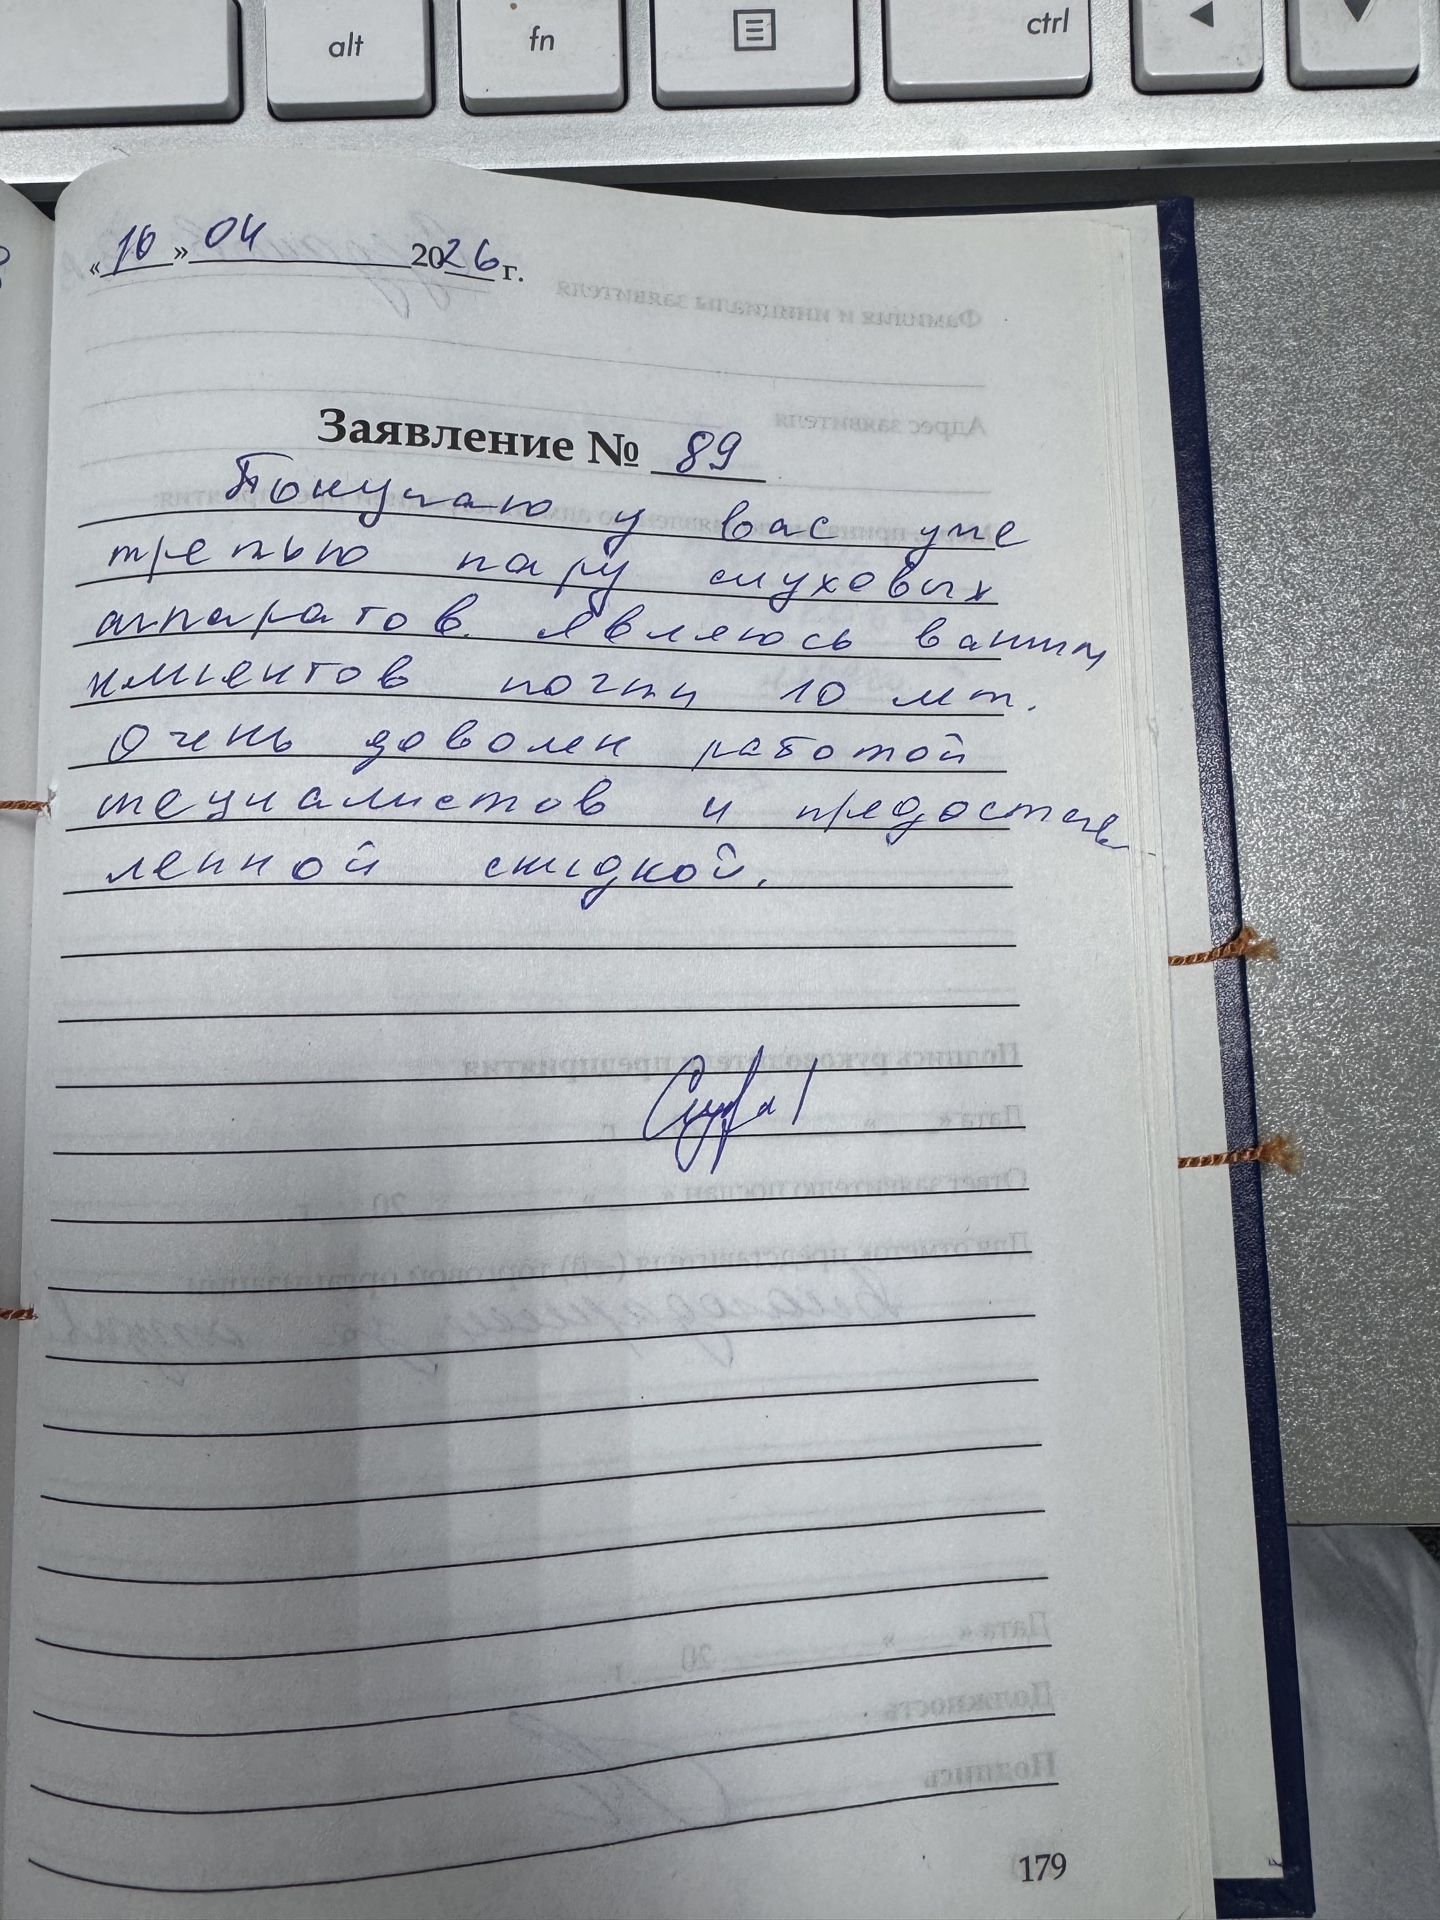 alt fn ctrl
«10» 04 2026 г.
Заявление № 89
Покупаю у вас уже
третью пару слуховых
аппаратов. Являюсь вашим
клиентов почти 10 лет.
Очень доволен работой
специалистов и предостав
ленной скидкой.
179